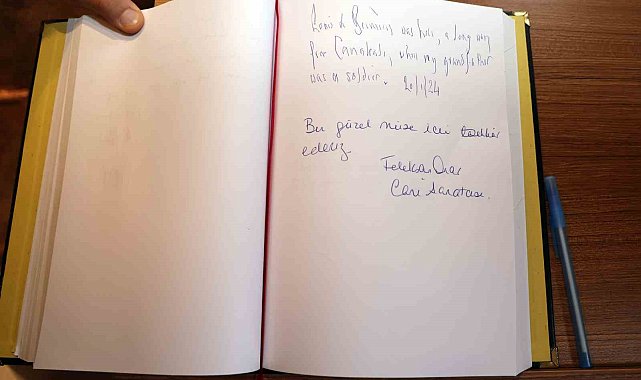 Louis de Bernières was here, a long way
from Canakkale, when my grandfather
was a soldier. 20/1/24
Bu güzel müze için teşekkür
ederiz.
Feleksan Onar
Cam Sanatçısı.